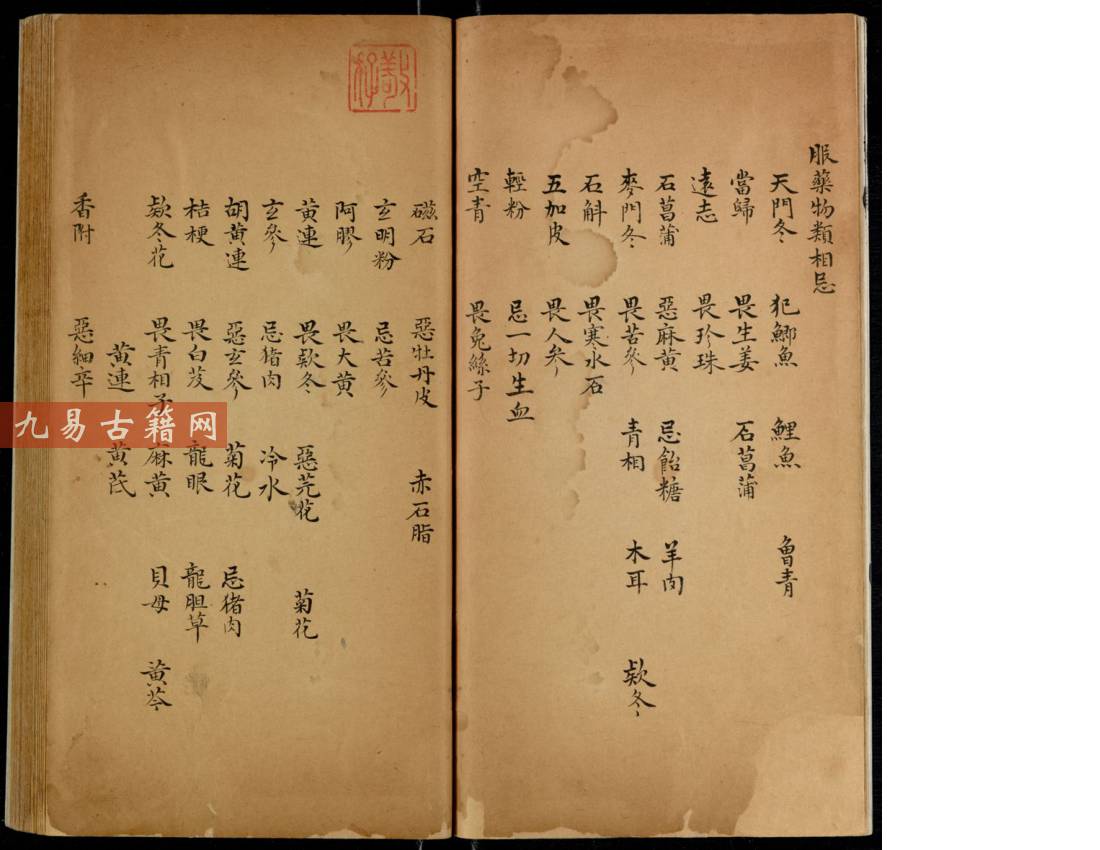 服藥物類相忌
天門冬 犯鯽魚 鯉魚 魯青
當歸 畏生姜 石菖蒲
遠志 畏珍珠
石菖蒲 惡麻黃 忌飴糖 羊肉
麥門冬 畏苦參 青相 木耳 欵冬
石斛 畏寒水石
五加皮 畏人參
輕粉 忌一切生血
空青 畏兔絲子
磁石 惡牡丹皮 赤石脂
玄明粉 忌苦參
阿膠 畏大黃
黃連 畏欵冬 惡芫花 菊花
玄參 忌猪肉 冷水
胡黃連 惡玄參 菊花 忌猪肉
桔梗 畏白芨 龍眼 龍胆草
欵冬花 畏青相子 麻黃 貝母 黃芩
黃連 黃芪
香附 惡細辛
九易古籍网